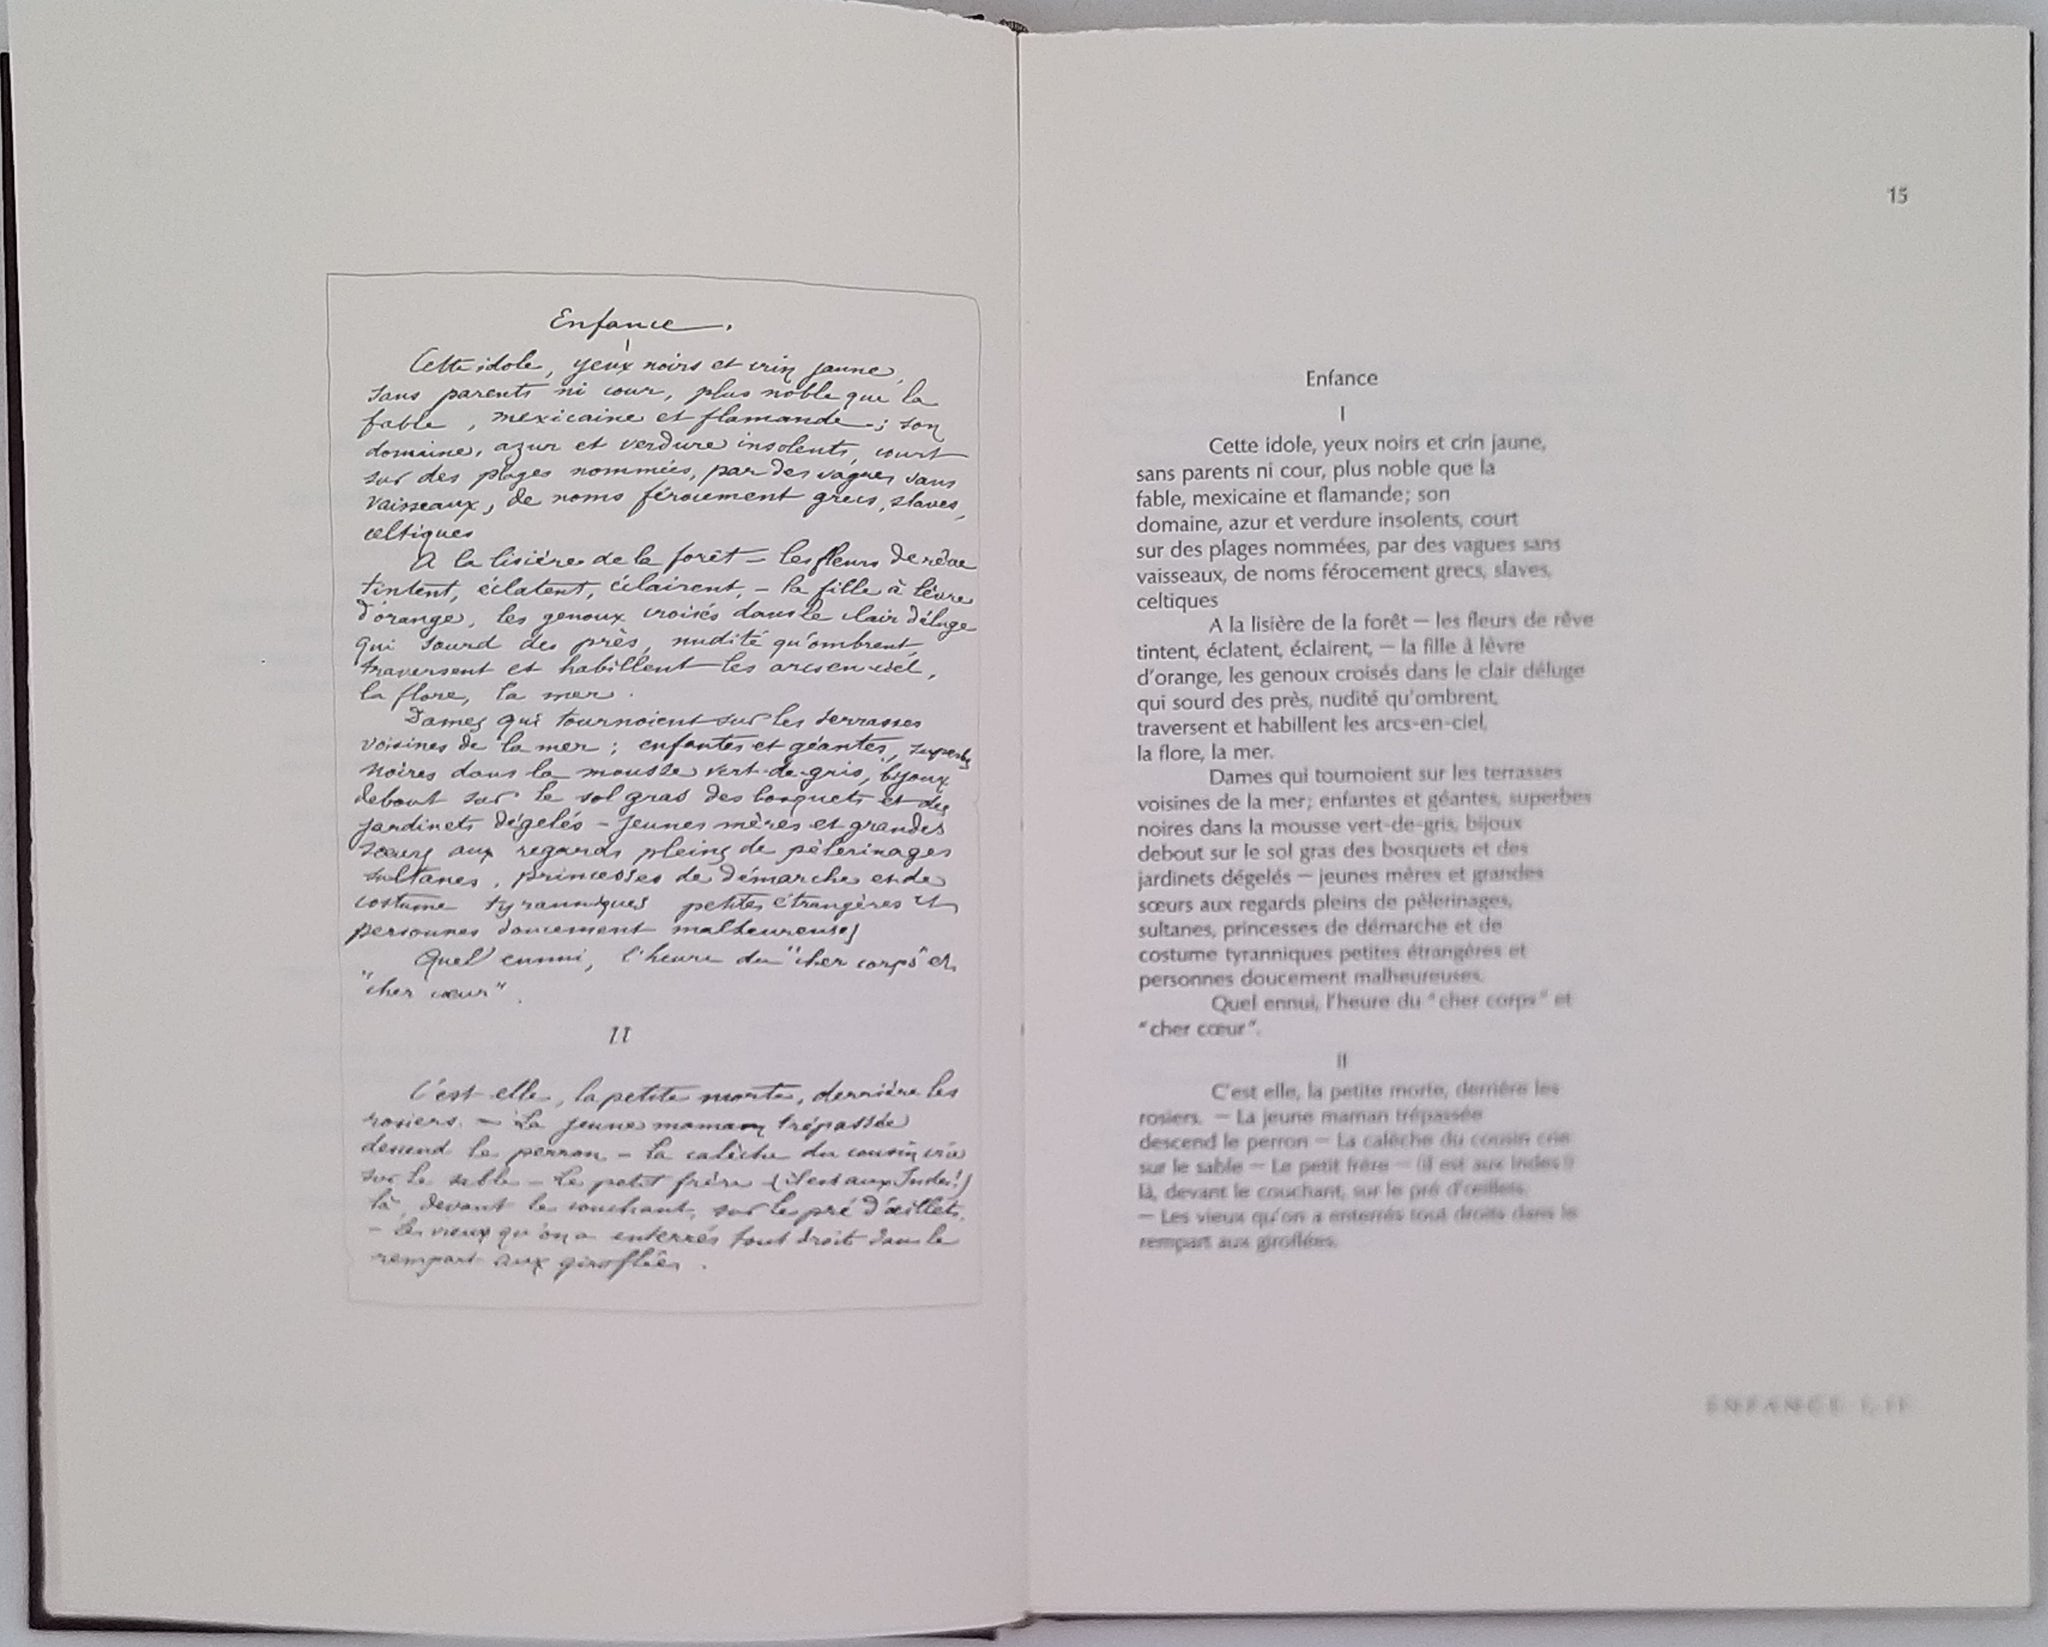 Enfance.
I
Cette idole, yeux noirs et crin jaune,
sans parents ni cour, plus noble que la
fable, mexicaine et flamande; son
domaine, azur et verdure insolents, court
sur des plages nommées, par des vagues sans
vaisseaux, de noms férocement grecs, slaves,
celtiques
A la lisière de la forêt — les fleurs de rêve
tintent, éclatent, éclairent, — la fille à lèvre
d'orange, les genoux croisés dans le clair déluge
qui sourd des près, nudité qu'ombrent,
traversent et habillent les arcs en ciel,
la flore, la mer.
Dames qui tournoient sur les terrasses
voisines de la mer; enfantes et géantes, superbes
noires dans la mousse vert-de-gris, bijoux
debout sur le sol gras des bosquets et des
jardinets dégelés — jeunes mères et grandes
sœurs aux regards pleins de pèlerinages
sultanes, princesses de démarche et de
costume tyranniques petites étrangères et
personnes doucement malheureuses
Quel ennui, l'heure du "cher corps" et
"cher cœur".
II
C'est elle, la petite morte, derrière les
rosiers. — La jeune maman trépassée
descend le perron — La calèche du cousin crie
sur le sable — Le petit frère — (il est aux Indes!)
là, devant le couchant, sur le pré d'œillets.
— Les vieux qu'on a enterrés tout droits dans le
rempart aux giroflées.
15
Enfance
I
Cette idole, yeux noirs et crin jaune,
sans parents ni cour, plus noble que la
fable, mexicaine et flamande; son
domaine, azur et verdure insolents, court
sur des plages nommées, par des vagues sans
vaisseaux, de noms férocement grecs, slaves,
celtiques
A la lisière de la forêt — les fleurs de rêve
tintent, éclatent, éclairent, — la fille à lèvre
d'orange, les genoux croisés dans le clair déluge
qui sourd des près, nudité qu'ombrent,
traversent et habillent les arcs-en-ciel,
la flore, la mer.
Dames qui tournoient sur les terrasses
voisines de la mer; enfantes et géantes, superbes
noires dans la mousse vert-de-gris, bijoux
debout sur le sol gras des bosquets et des
jardinets dégelés — jeunes mères et grandes
sœurs aux regards pleins de pèlerinages,
sultanes, princesses de démarche et de
costume tyranniques petites étrangères et
personnes doucement malheureuses.
Quel ennui, l'heure du "cher corps" et
"cher cœur".
II
C'est elle, la petite morte, derrière les
rosiers. — La jeune maman trépassée
descend le perron — La calèche du cousin crie
sur le sable — Le petit frère — (il est aux Indes!)
là, devant le couchant, sur le pré d'œillets.
— Les vieux qu'on a enterrés tout droits dans le
rempart aux giroflées.
ENFANCE I, II